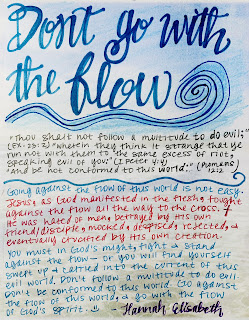 Don't go with
the flow
"Thou shalt not follow a multitude to do evil;"
(EX. 23:2) "Wherein they think it strange that ye
run not with them to the same excess of riot,
speaking evil of you:" (I Peter 4:4)
"And be not conformed to this world..." (Romans
12:2
Going against the flow of this world is not easy.
Jesus, as God manifested in the flesh, fought
against the flow all the way to the cross. †
He was hated of men, betrayed by His own
friend/disciple, mocked, despised, rejected, &
eventually crucified by His own creation.
You must in God's might, fight & stand
against the flow - or you will find yourself
swept up & carried into the current of this
evil world. Don't follow a multitude to do evil.
Don't be conformed to this world. Go against
the flow of this world, & go with the flow
of God's Spirit.
Hannah Elisabeth